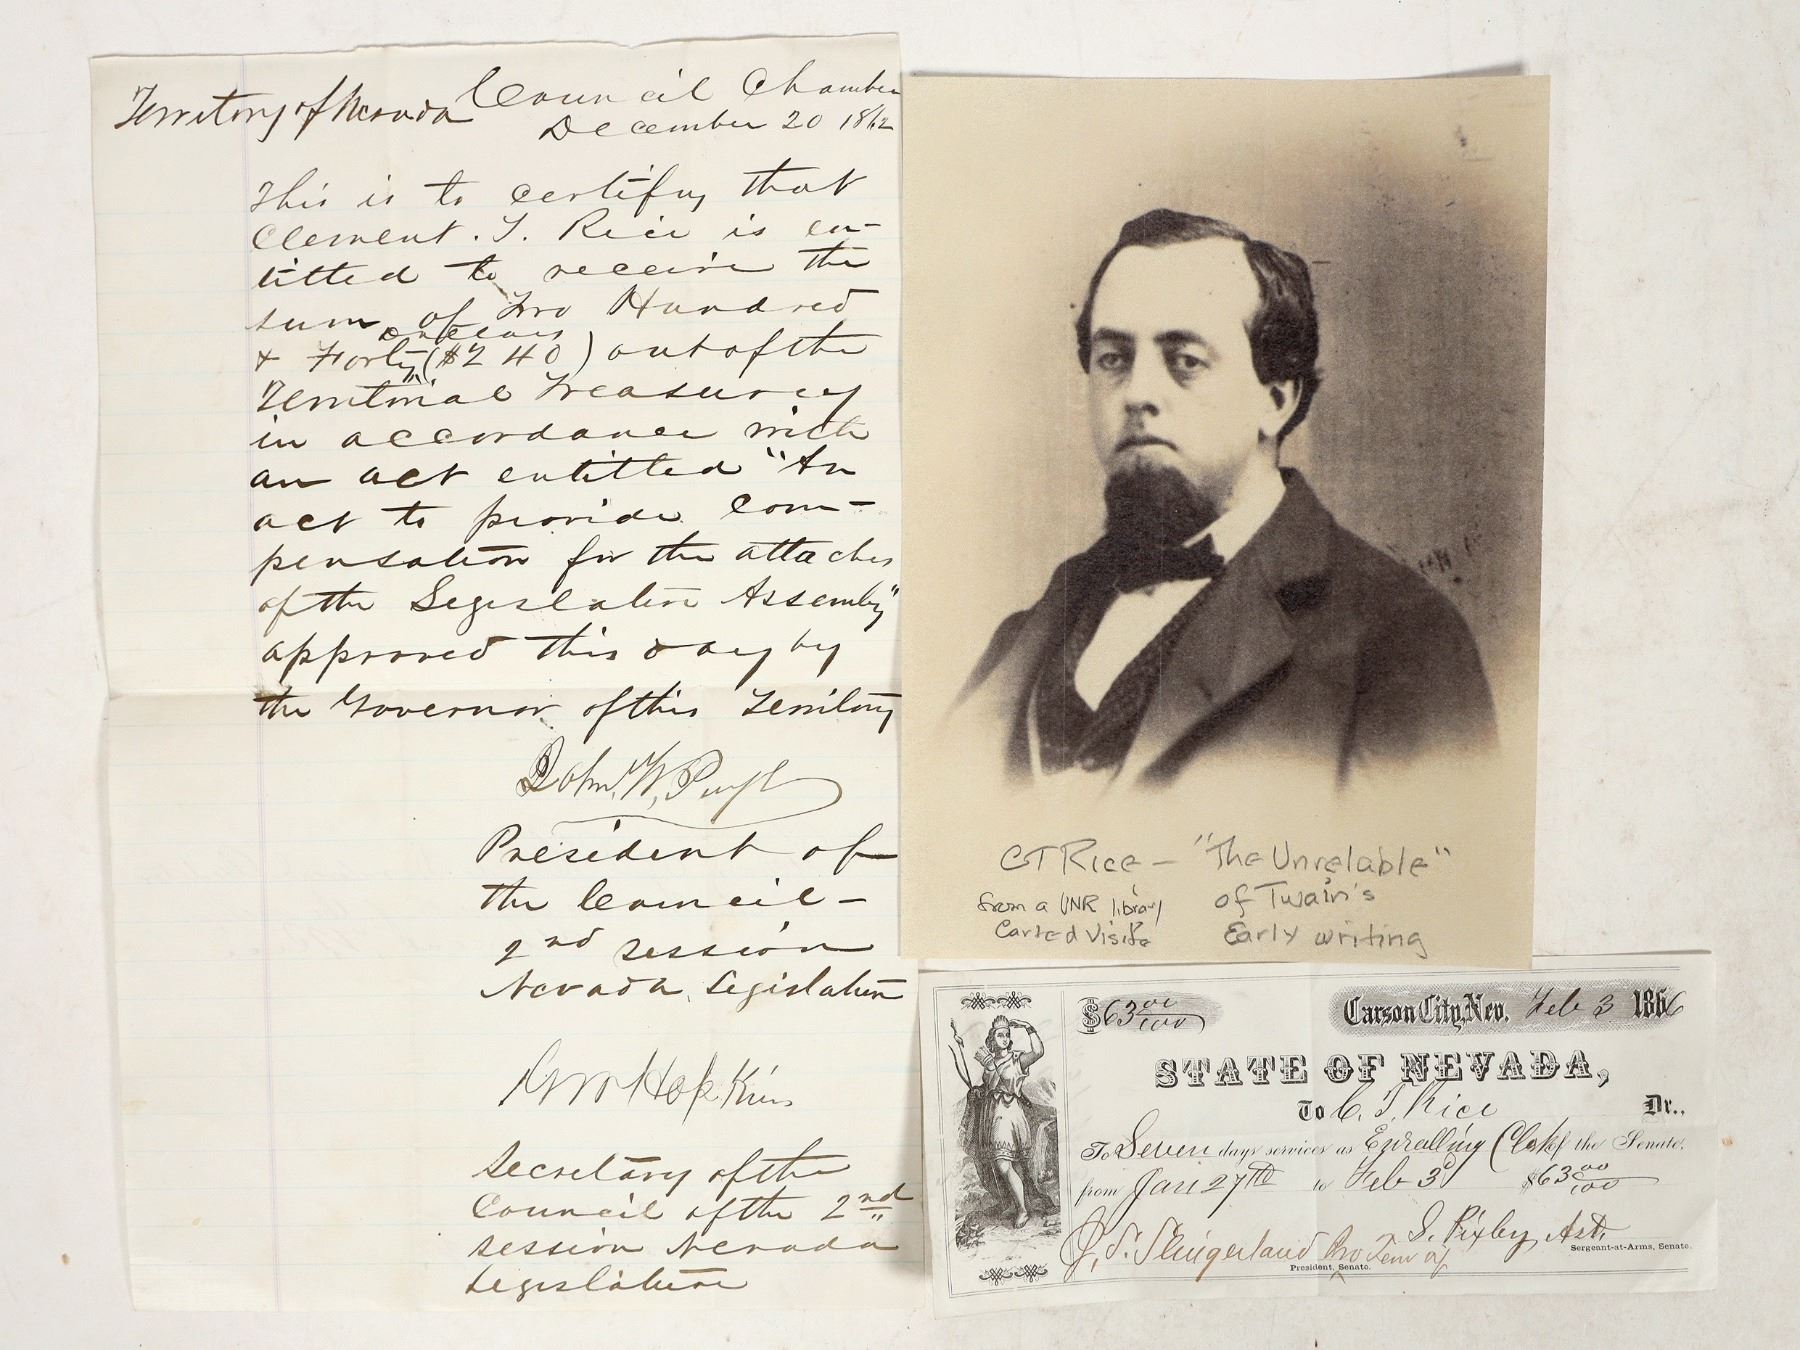 Territory of Nevada Council Chamber
December 20 1862
This is to certify that
Clement. T. Rice is en-
titled to receive the
sum of Two Hundred
Dollars
& Forty ($240) out of the
Territorial Treasury
in accordance with
an act entitled "An
act to provide com-
pensation for the attaches
of the Legislative Assembly"
approved this day by
the Governor of this Territory
John. W. Pugh
President of
the Council -
2nd session
Nevada Legislature
Hopkins
Secretary of the
Council of the 2nd
session Nevada
Legislature
CT Rice - "The Unrelable"
of Twain's
Early writing
from a UNR library
Carted Visite
$63 00/100 Carson City, Nev. Feb 3 1866
STATE OF NEVADA,
To C. T. Rice Dr.,
To Seven days services as Enrolling Clerk of the Senate,
from Jan 27th to Feb 3d $63 00/100
S. Pixby, Ast.
Sergeant-at-Arms, Senate.
J. S. Slingerland Pro Tem of
President, Senate.